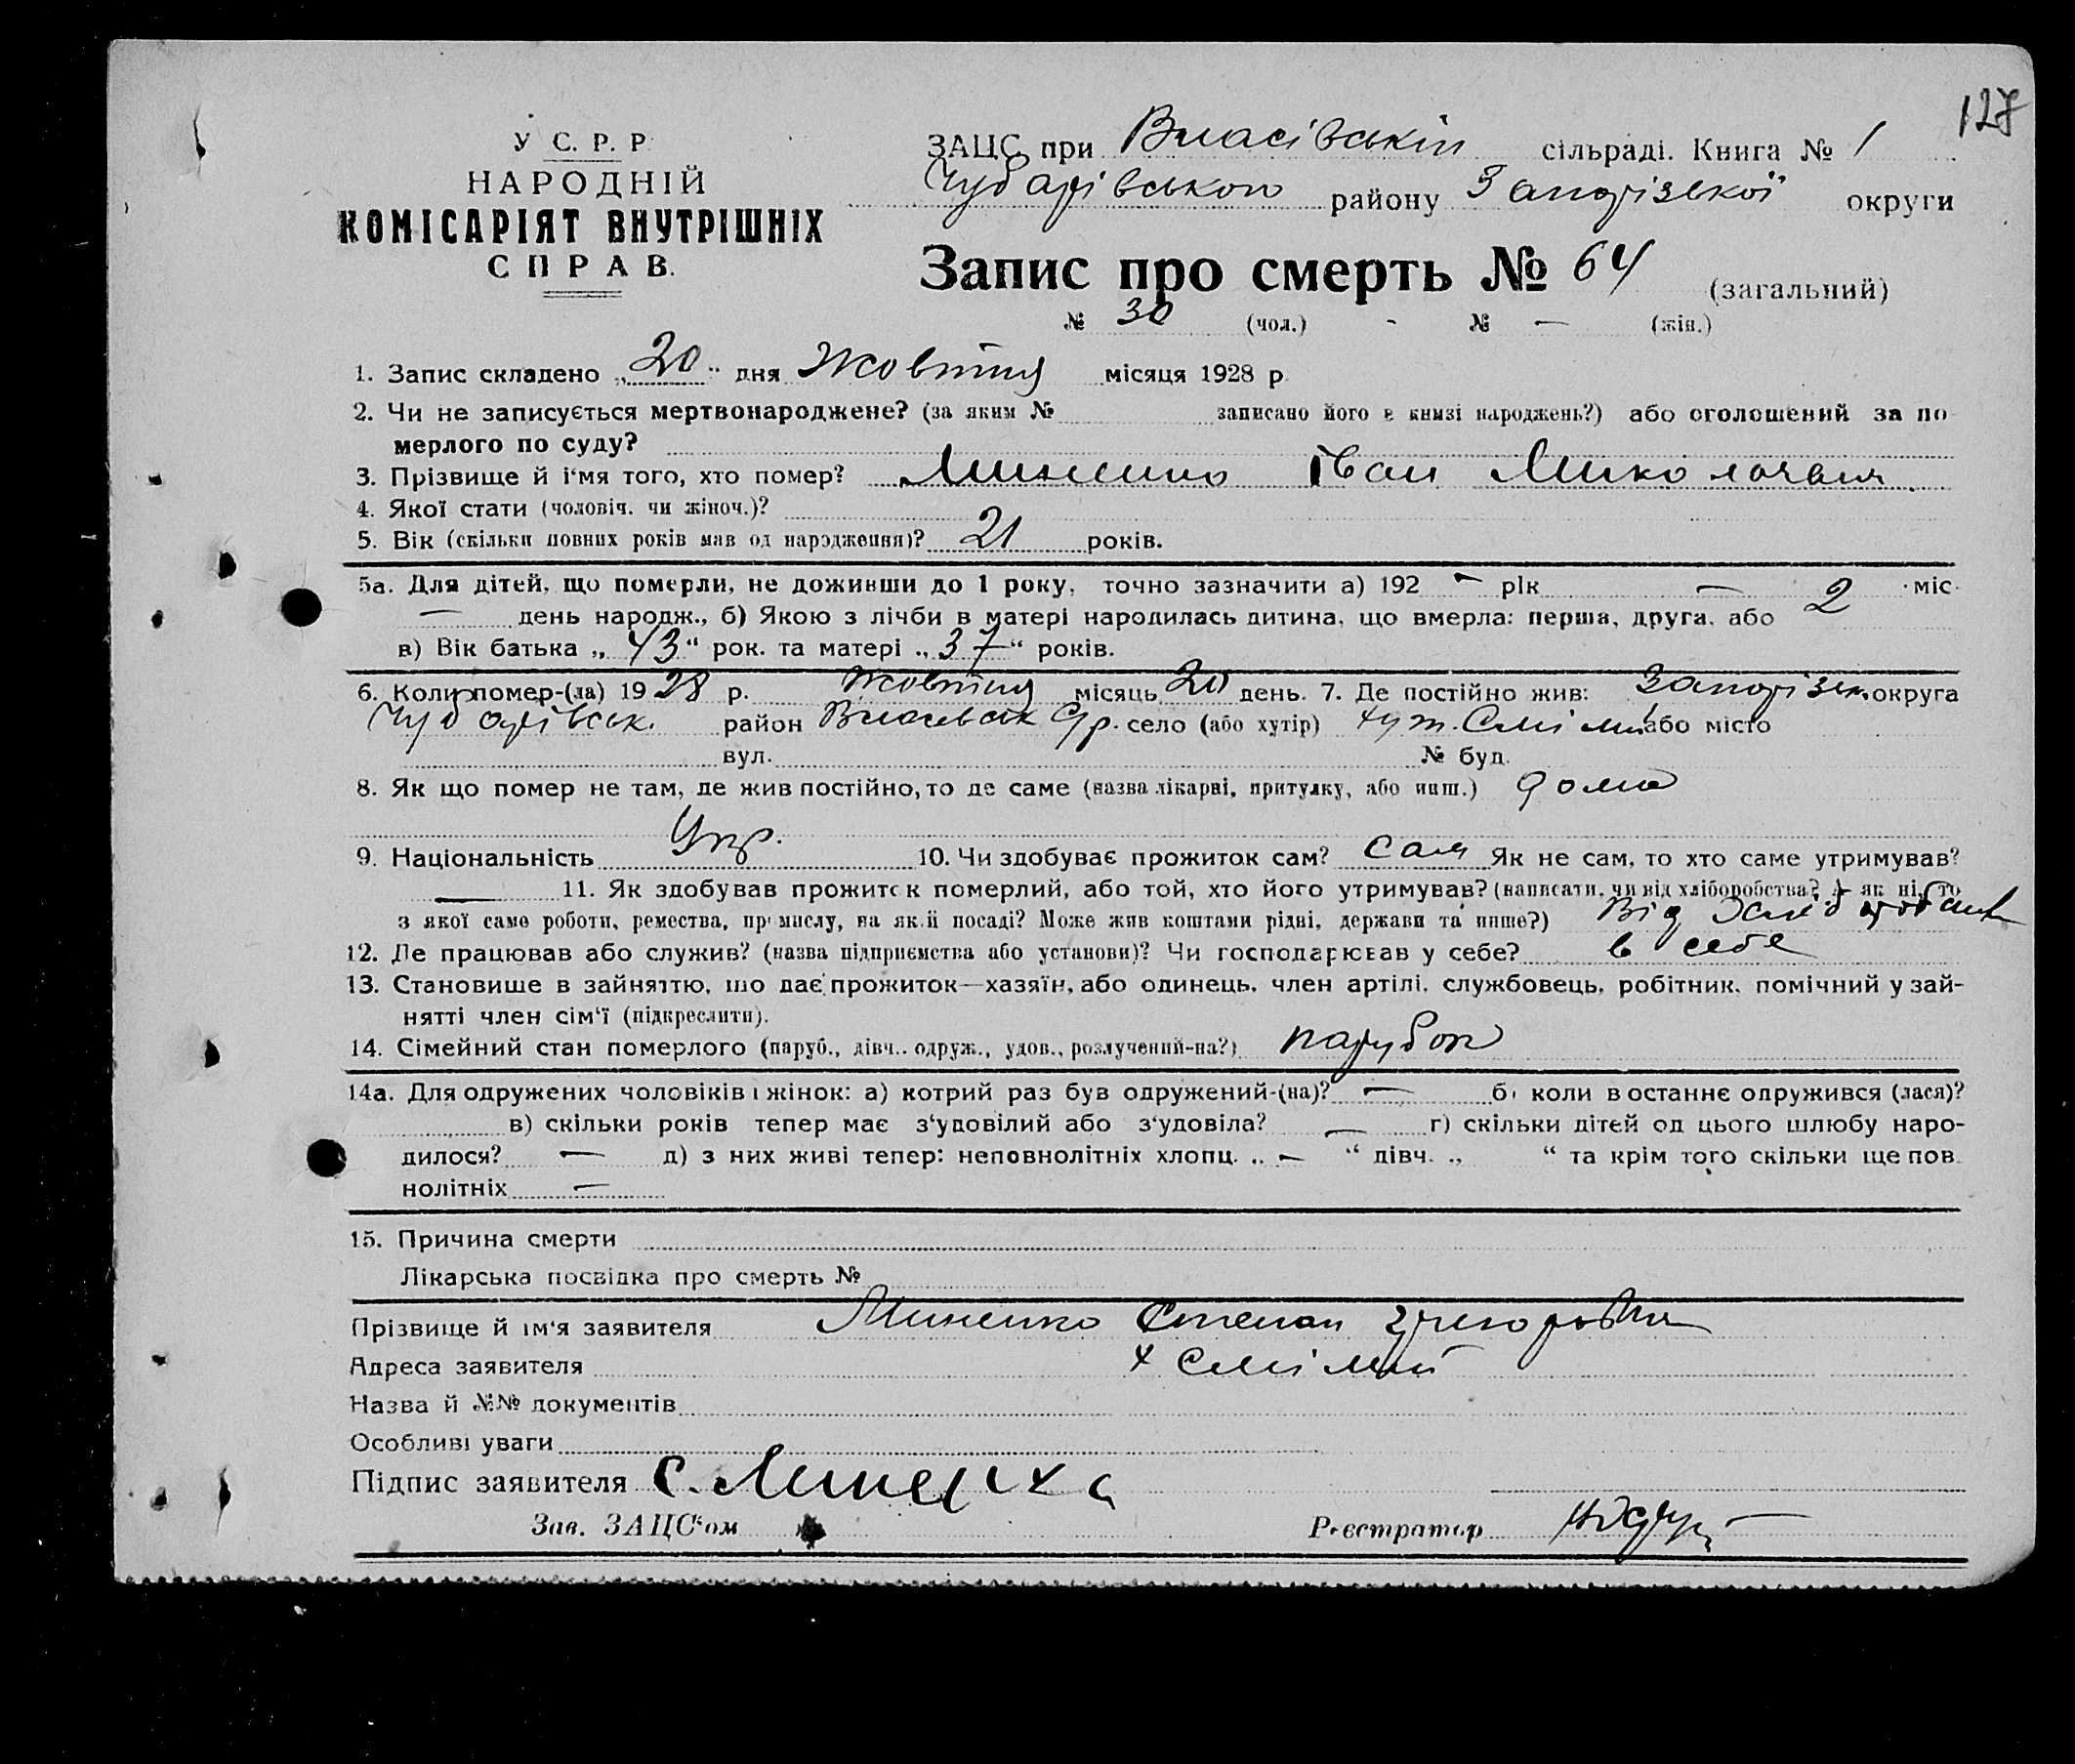 127
У С. Р. Р.
НАРОДНІЙ
КОМІСАРІЯТ ВНУТРІШНІХ
СПРАВ.
ЗАЦС при Власівській сільраді. Книга № 1
Чубарівського району Запорізької округи
Запис про смерть № 64 (загальний)
№ 30 (чол.) - № — (жін.)
1. Запис складено „20" дня Жовтня місяця 1928 р.
2. Чи не записується мертвонароджене? (за яким № записано його в книзі народжень?) або оголошений за по
мерлого по суду?
3. Прізвище й і'мя того, хто помер? Миненко Іван Миколаєвич
4. Якої стати (чоловіч. чи жіноч.)?
5. Вік (скільки повних років мав од народження)? 21 років.
5а. Для дітей, що померли, не доживши до 1 року, точно зазначити а) 192 — рік — міс.
— день народж., б) Якою з лічби в матері народилась дитина, що вмерла: перша, друга, або 2
в) Вік батька „43" рок. та матері „37" років.
6. Коли помер-(ла) 1928 р. Жовтня місяць 20 день. 7. Де постійно жив: Запорізьк. округа
Чубарівськ. район Власівськ с/р. село (або хутір) хут. або місто
вул. № буд.
8. Як що помер не там, де жив постійно, то де саме (назва лікарні, притулку, або инш.) дома
9. Національність Укр. 10. Чи здобуває прожиток сам? сам Як не сам, то хто саме утримував?
— 11. Як здобував прожиток померлий, або той, хто його утримував? (написати, чи від хліборобства? А як ні, то
з якої саме роботи, ремества, промислу, на якій посаді? Може жив коштами рідні, держави та инше?) Від
12. Де працював або служив? (назва підприємства або установи)? Чи господарював у себе? в себе
13. Становище в зайняттю, що дає прожиток—хазяїн, або одинець, член артілі, службовець, робітник, помічний у зай-
нятті член сім'ї (підкреслити).
14. Сімейний стан померлого (паруб., дівч., одруж., удов., розлучений-на?) парубок
14а. Для одружених чоловіків і жінок: а) котрий раз був одружений-(на)? — б) коли в останнє одружився (лася)?
в) скільки років тепер має з'удовілий або з'удовіла? — г) скільки дітей од цього шлюбу наро-
дилося? — д) з них живі тепер: неповнолітніх хлопц. „ — " дівч. „ " та крім того скільки ще пов
нолітніх —
15. Причина смерти
Лікарська посвідка про смерть №
Прізвище й ім'я заявителя Миненко Степан
Адреса заявителя х
Назва й №№ документів
Особливі уваги
Підпис заявителя С.
Зав. ЗАЦС'ом Реєстратор